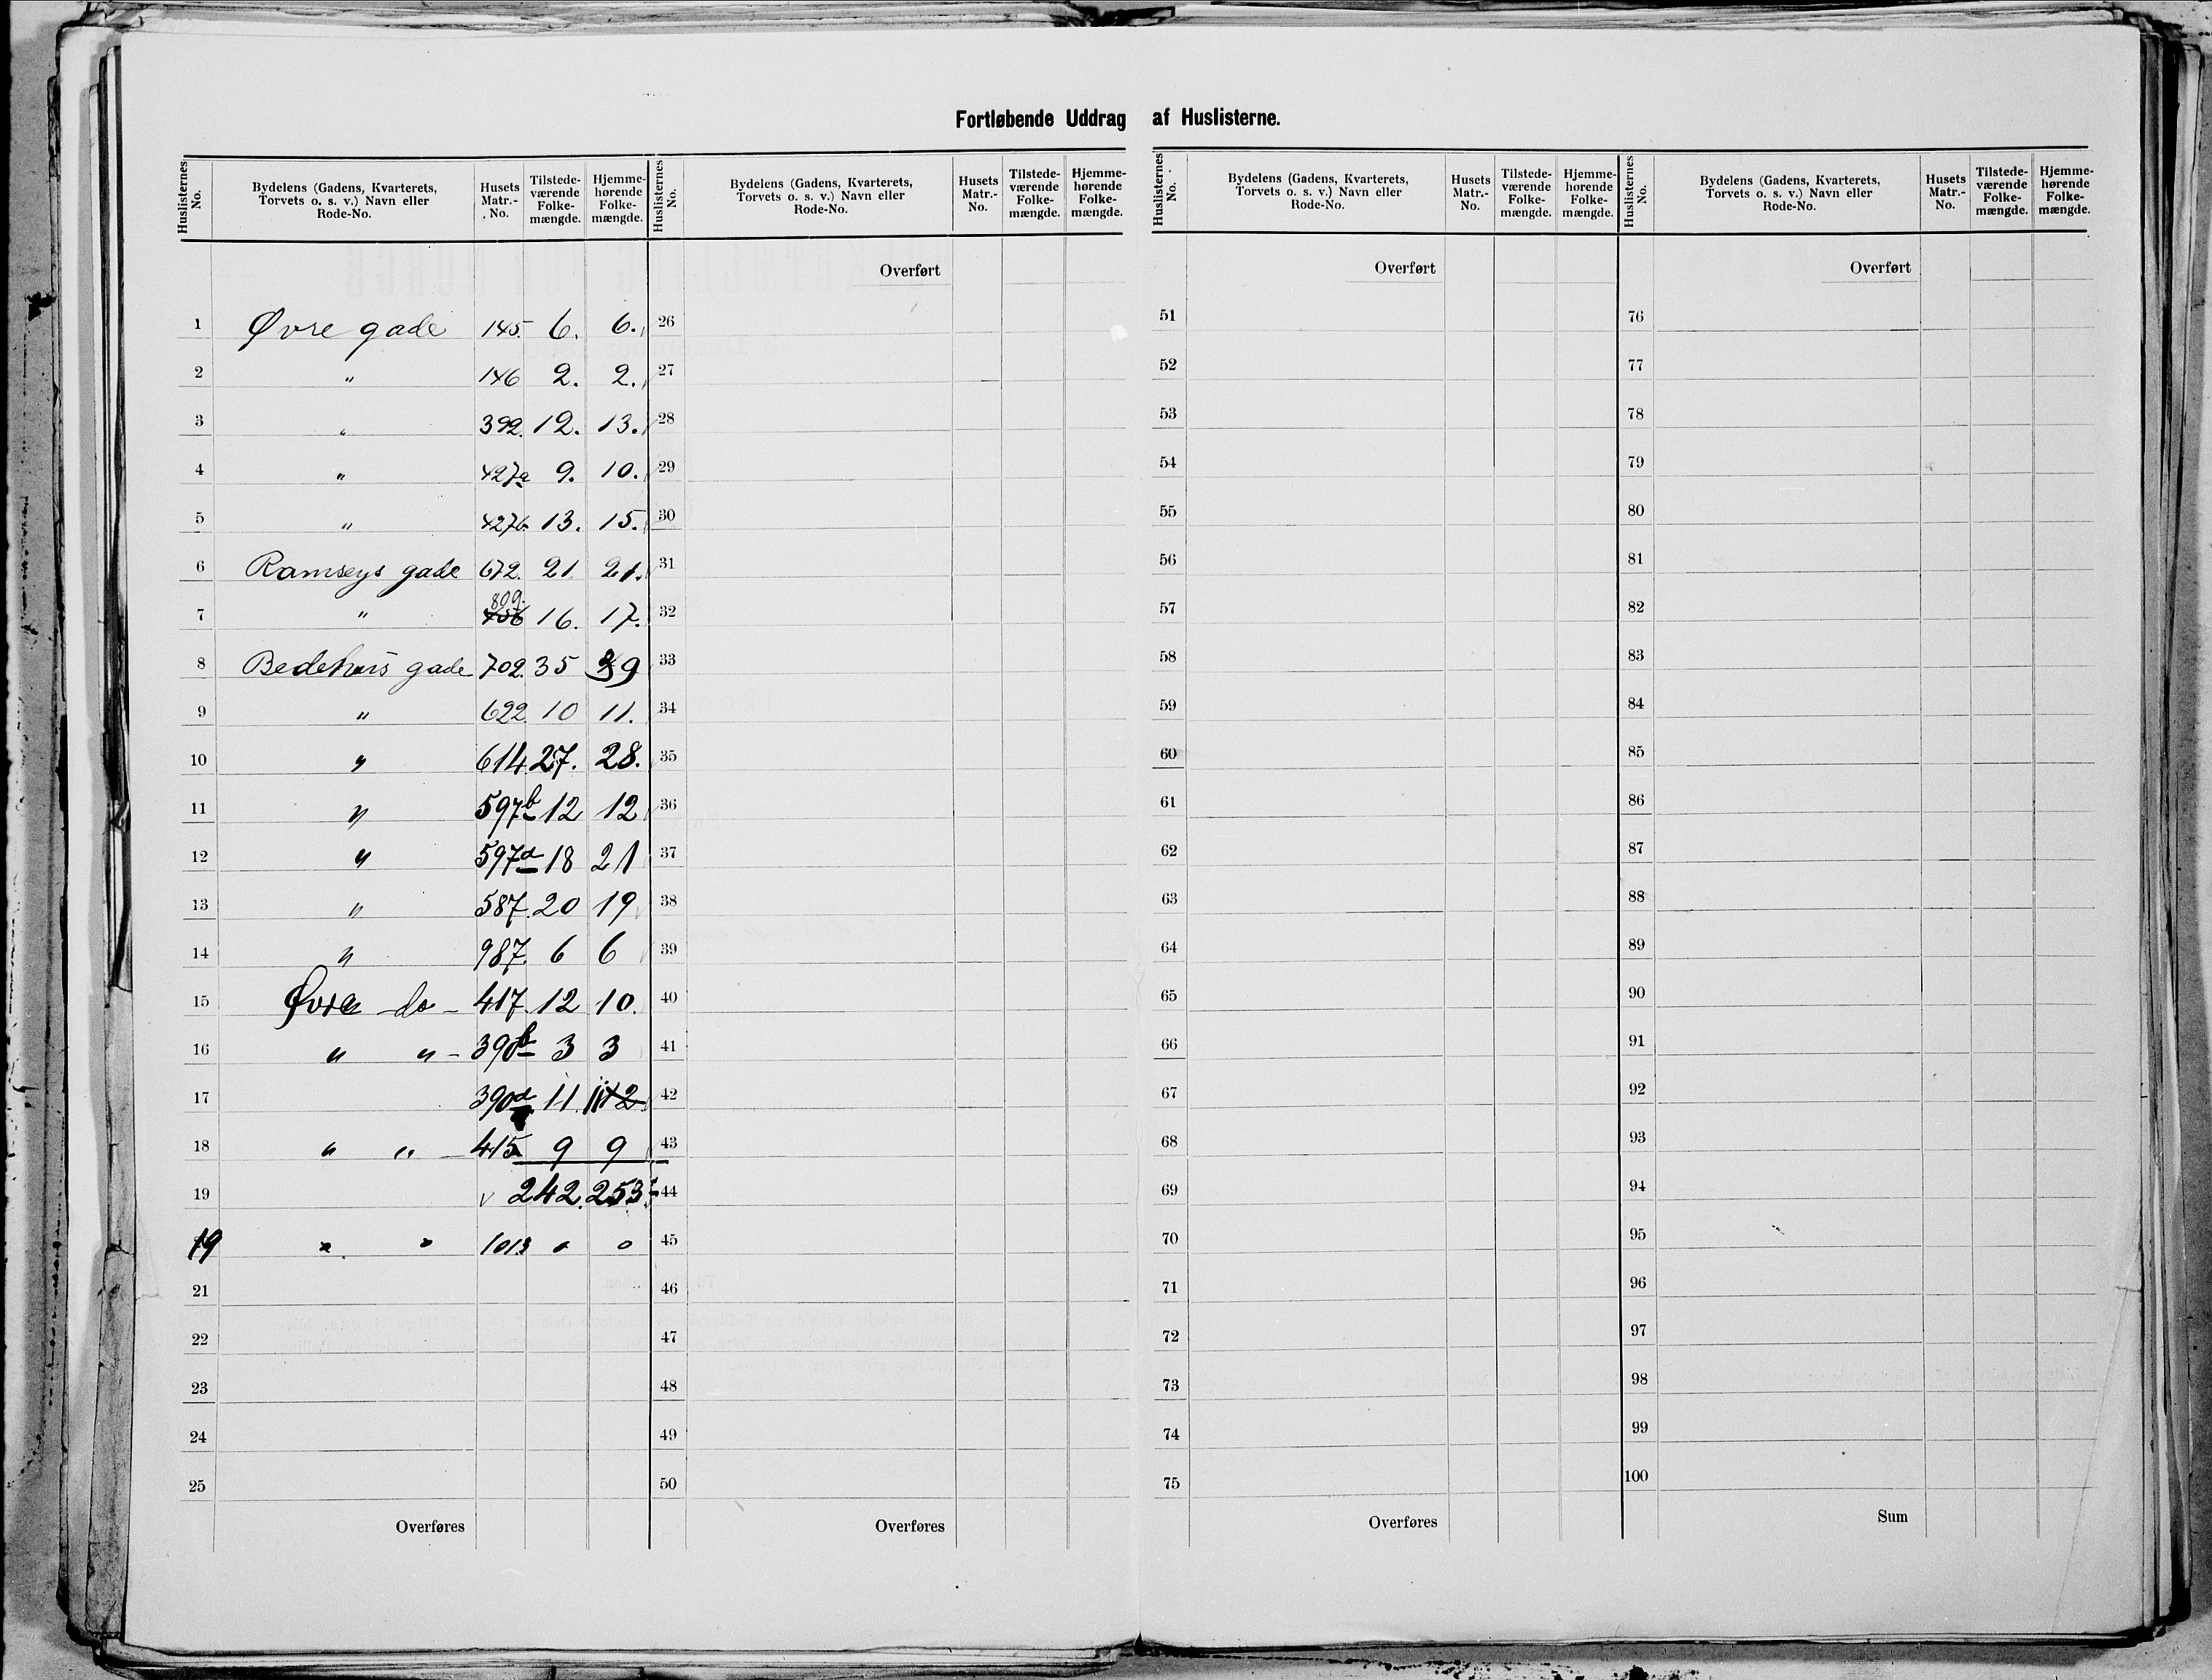 Fortløbende Uddrag af Huslisterne.
Huslisternes No. Bydelens (Gadens, Kvarterets, Torvets o. s. v.) Navn eller Rode-No. Husets Matr.-No. Tilstede-værende Folke-mængde. Hjemme-hørende Folke-mængde.
1 Øvre gade 145. 6. 6.
2 " 146 2. 2.
3 " 392. 12. 13.
4 " 427a 9. 10.
5 " 427b 13. 15.
6 Ramseys gade 672. 21 21.
809.
7 " 16. 17.
8 Bedehus gade 702. 35 39
9 " 622 10 11.
10 " 614 27. 28.
11 " 597b 12 12
12 " 597a 18 21
13 " 587. 20 19
14 " 987. 6 6
15 Øvre do - 417. 12 10.
16 " " - 390b 3 3
17 390a 11 11 12
18 " " - 415 9 9
19 242. 253.
19 " " 1013 0 0
21
22
23
24
25
Overføres
Huslisternes No. Bydelens (Gadens, Kvarterets, Torvets o. s. v.) Navn eller Rode-No. Husets Matr.-No. Tilstede-værende Folke-mængde. Hjemme-hørende Folke-mængde.
Overført
26
27
28
29
30
31
32
33
34
35
36
37
38
39
40
41
42
43
44
45
46
47
48
49
50
Overføres
Huslisternes No. Bydelens (Gadens, Kvarterets, Torvets o. s. v.) Navn eller Rode-No. Husets Matr.-No. Tilstede-værende Folke-mængde. Hjemme-hørende Folke-mængde.
Overført
51
52
53
54
55
56
57
58
59
60
61
62
63
64
65
66
67
68
69
70
71
72
73
74
75
Overføres
Huslisternes No. Bydelens (Gadens, Kvarterets, Torvets o. s. v.) Navn eller Rode-No. Husets Matr.-No. Tilstede-værende Folke-mængde. Hjemme-hørende Folke-mængde.
Overført
76
77
78
79
80
81
82
83
84
85
86
87
88
89
90
91
92
93
94
95
96
97
98
99
100
Sum